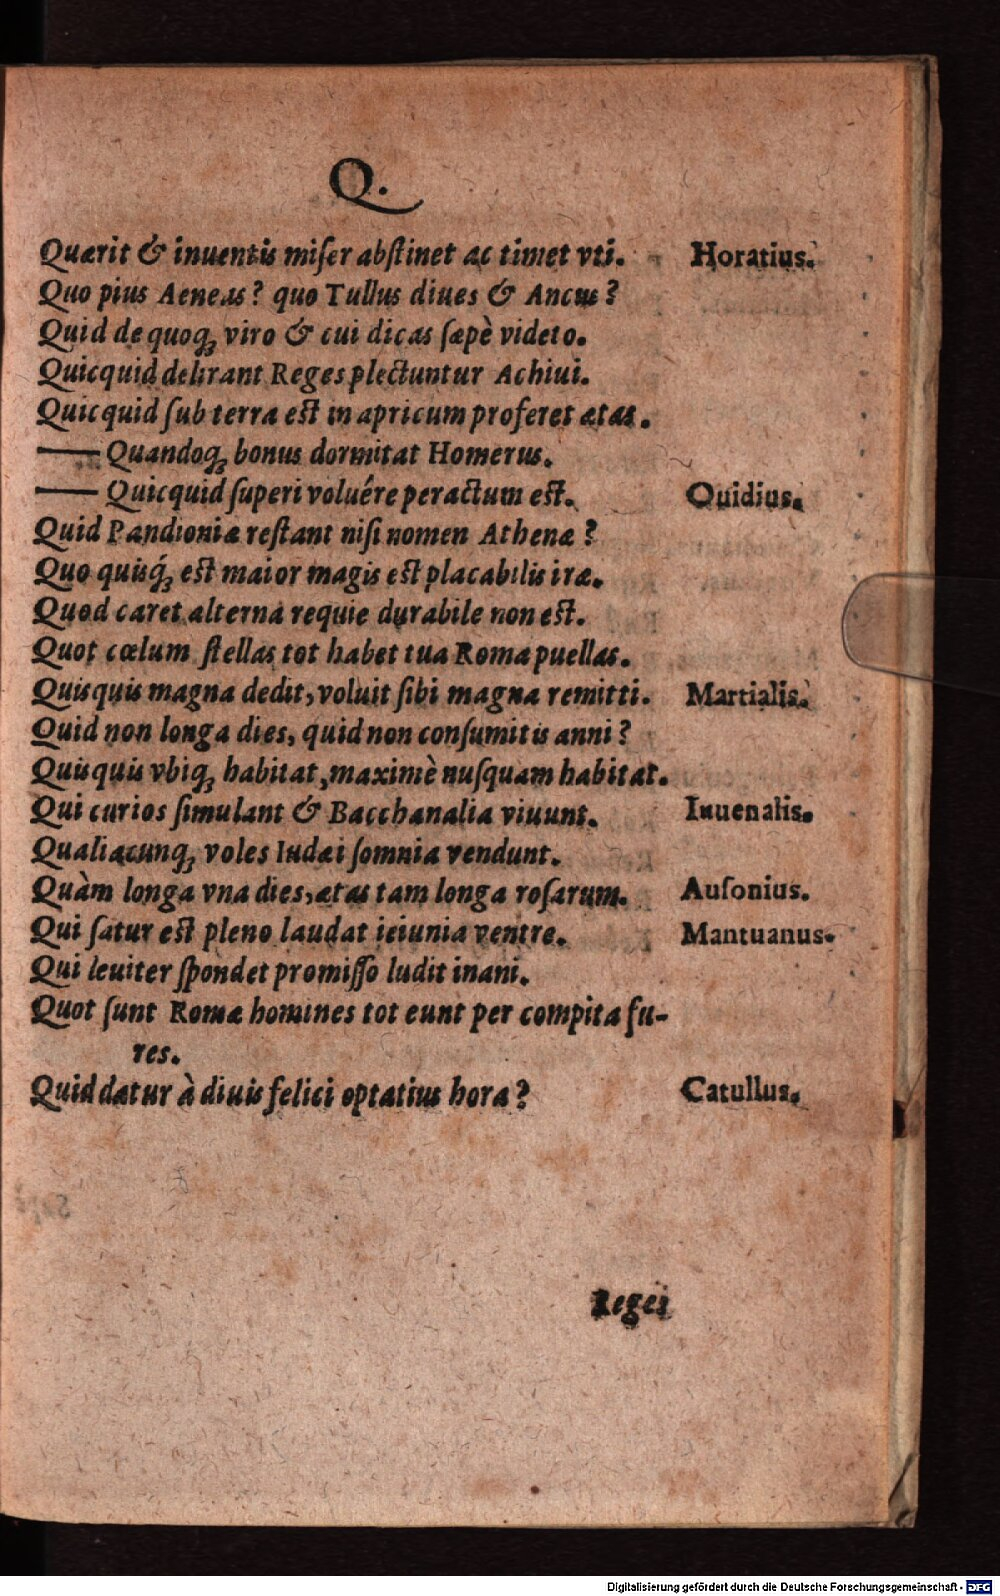 Q.
Quærit & inuentis miſer abſtinet ac timet vti. Horatius.
Quo pius Aeneas? quo Tullus diues & Ancus?
Quid de quoq; viro & cui dicas ſæpè videto.
Quicquid delirant Reges plectuntur Achiui.
Quicquid ſub terra est in apricum proferet ætas.
—— Quandoq; bonus dormitat Homerus.
—— Quicquid ſuperi voluêre peractum est. Ouidius.
Quid Pandioniæ reſtant niſi nomen Athenæ?
Quo quisq́; est maior magis est placabilis iræ.
Quod caret alterna requie durabile non est.
Quot cœlum ſtellas tot habet tua Roma puellas.
Quisquis magna dedit, voluit ſibi magna remitti. Martialis.
Quid non longa dies, quid non conſumitis anni?
Quisquis vbiq; habitat, maximè nuſquam habitat.
Qui curios ſimulant & Bacchanalia viuunt. Iuuenalis.
Qualiacunq; voles Iudæi ſomnia vendunt.
Quàm longa vna dies, ætas tam longa roſarum. Auſonius.
Qui ſatur est pleno laudat ieiunia ventre. Mantuanus.
Qui leuiter ſpondet promiſſo ludit inani.
Quot ſunt Romæ homines tot eunt per compita fu-
res.
Quid datur à diuis felici optatius hora? Catullus.
Reges
Digitalisierung gefördert durch die Deutsche Forschungsgemeinschaft - DFG